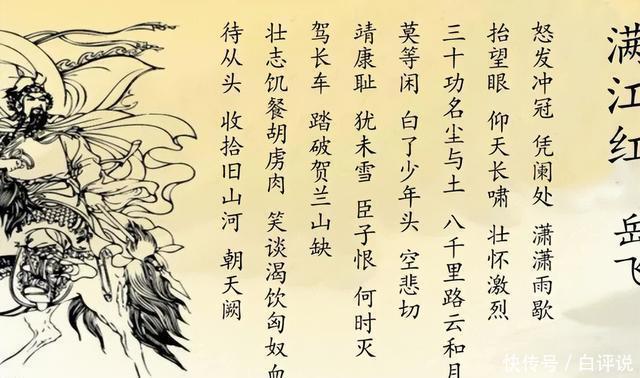 满江红 岳飞
怒发冲冠 凭阑处 潇潇雨歇
抬望眼 仰天长啸 壮怀激烈
三十功名尘与土 八千里路云和月
莫等闲 白了少年头 空悲切
靖康耻 犹未雪 臣子恨 何时灭
驾长车 踏破贺兰山缺
壮志饥餐胡虏肉 笑谈渴饮匈奴血
待从头 收拾旧山河 朝天阙
快传号 / 白评说